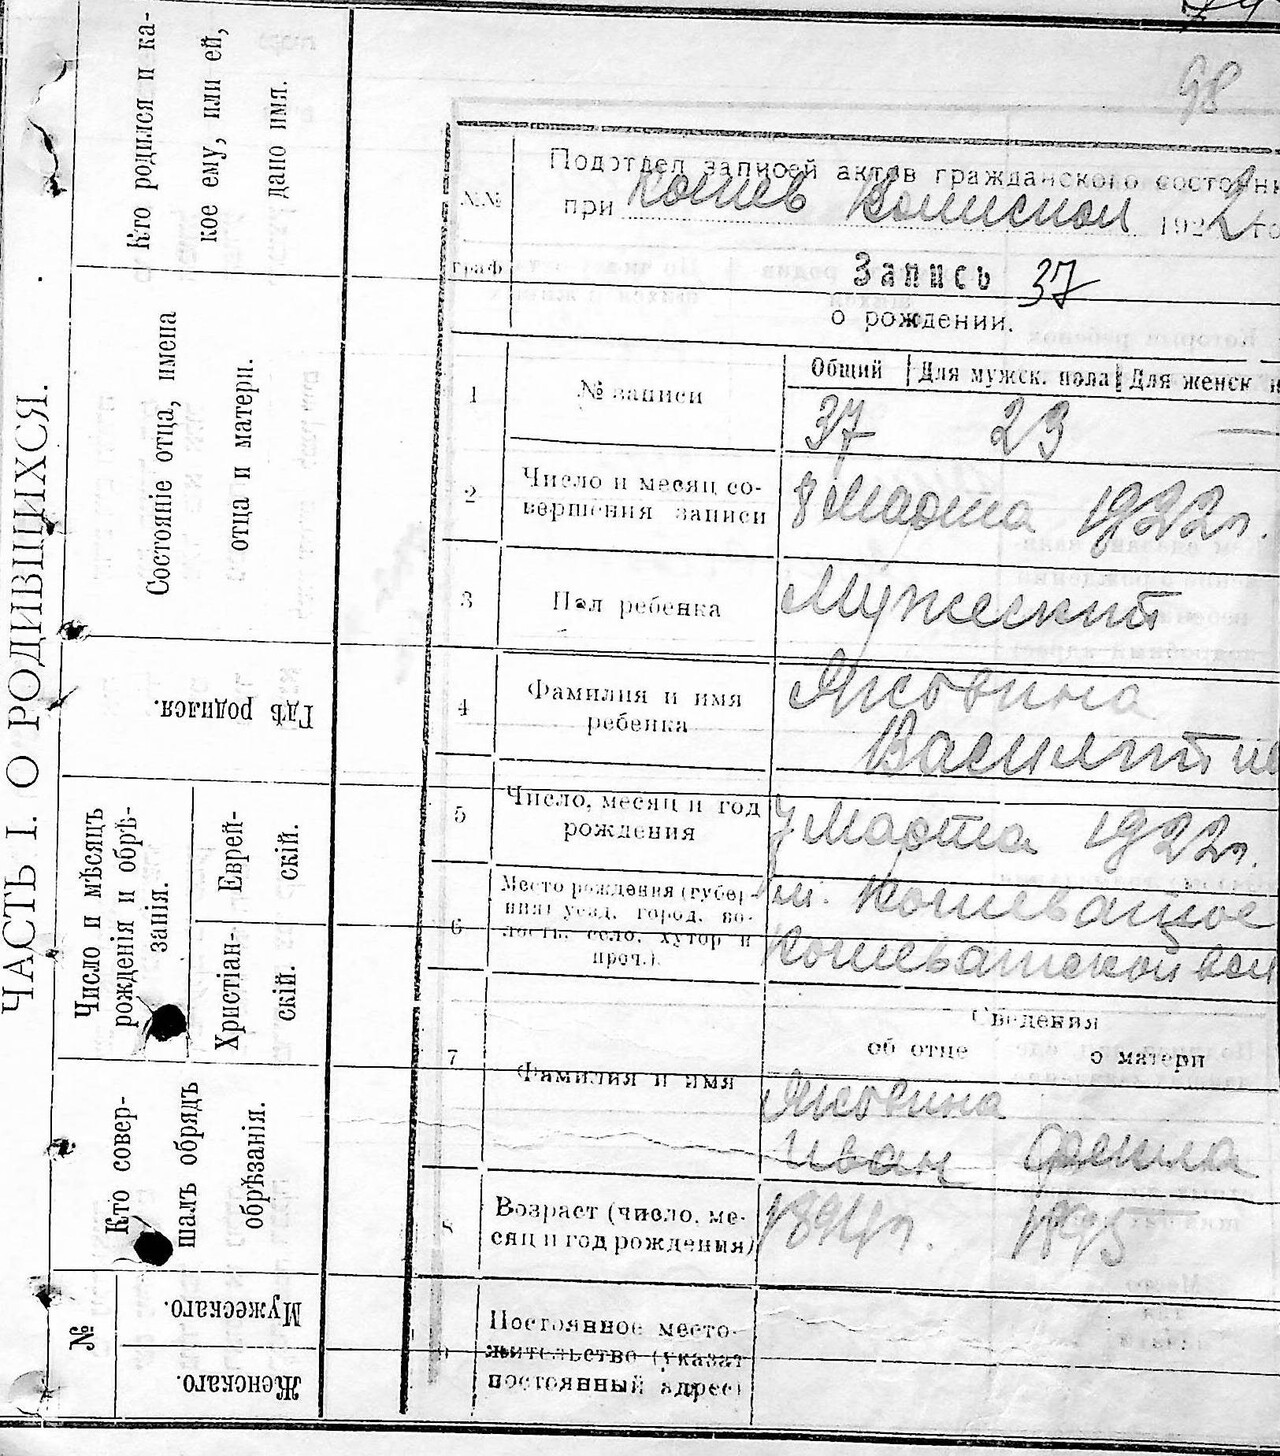 98
ЧАСТЬ I. О РОДИВШИХСЯ.
Кто родился и ка-
кое ему, или ей,
дано имя.
Состояніе отца, имена
отца и матери.
Гдѣ родился.
Число и мѣсяцъ
рожденія и обрѣ-
занія.
Еврей-
скій.
Христіан-
скій.
Кто совер-
шалъ обрядъ
обрѣзанія.
№
Мужескаго.
Женскаго.
№№
граф
Подотдел записей актов гражданского состояни
при Кошев Волиспол 1922 го
Запись 37
о рождении.
1 № записи
Общий Для мужск. пола Для женск
37 23 —
2 Число и месяц со-
вершения записи
8 Марта 1922 г.
3 Пол ребенка
Мужеский
4 Фамилия и имя
ребенка
Яковина
Василий
5 Число, месяц и год
рождения
7 Марта 1922 г.
6 Место рождения (губер-
ния, уезд, город, во-
лость, село, хутор и
проч.).
м. Кошеватое
Кошеватской вол
7 Фамилия и имя
Сведения
об отце о матери
Яковина
Иван Фекла
8 Возраст (число, ме-
сяц и год рождения)
1894 г. 1895
9 Постоянное место-
жительство (указат
постоянный адрес)